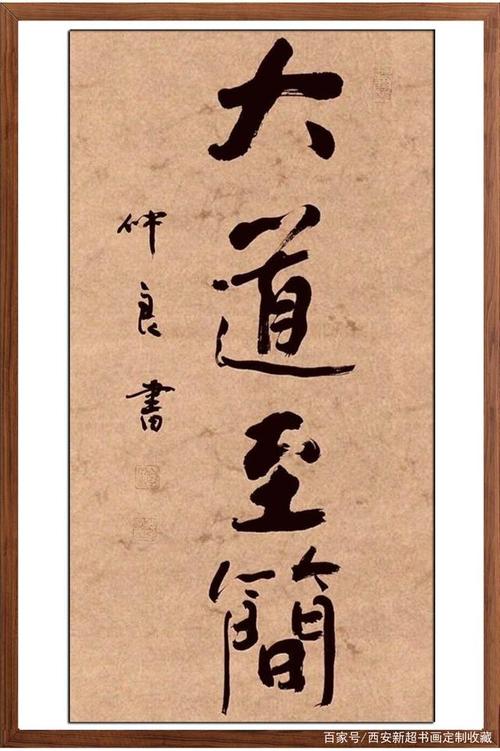 大道至簡
仲良書
百家号/西安新超书画定制收藏